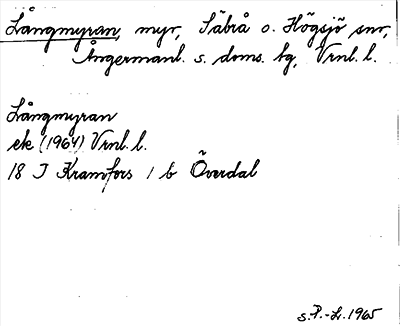 Långmyran, myr, Säbrå o. Högsjö snr,
Ångermanl. s. doms. hg, Vrnl. l.
Långmyran
ek (1964) Vrnl. l.
18 I Kramfors 1 b Överdal
s. P.-Lr. 1965